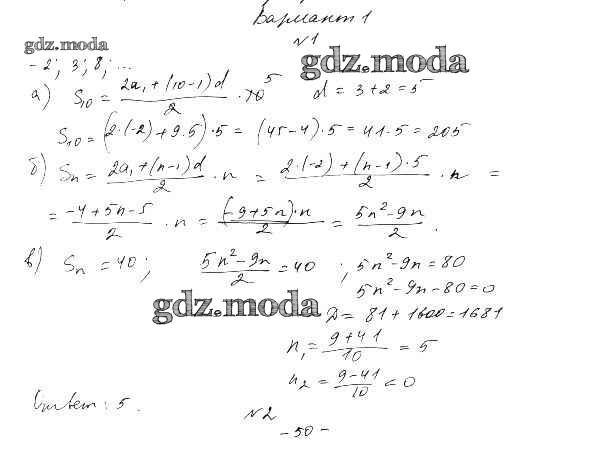 Вариант 1
№1
gdz.moda
gdz.moda
-2; 3; 8; ...
а) S₁₀ = (2a₁ + (10-1)d)/2 · 10 5 d = 3+2 = 5
S₁₀ = (2·(-2) + 9·5)·5 = (45-4)·5 = 41·5 = 205
б) Sn = (2a₁ + (n-1)d)/2 · n = (2·(-2) + (n-1)·5)/2 · n =
= (-4+5n-5)/2 · n = ((-9+5n)·n)/2 = (5n²-9n)/2.
в) Sn = 40; (5n²-9n)/2 = 40; 5n²-9n = 80
5n²-9n-80=0
gdz.moda
D = 81 + 1600 = 1681
n₁ = (9+41)/10 = 5
n₂ = (9-41)/10 < 0
Ответ: 5.
№2
- 50 -